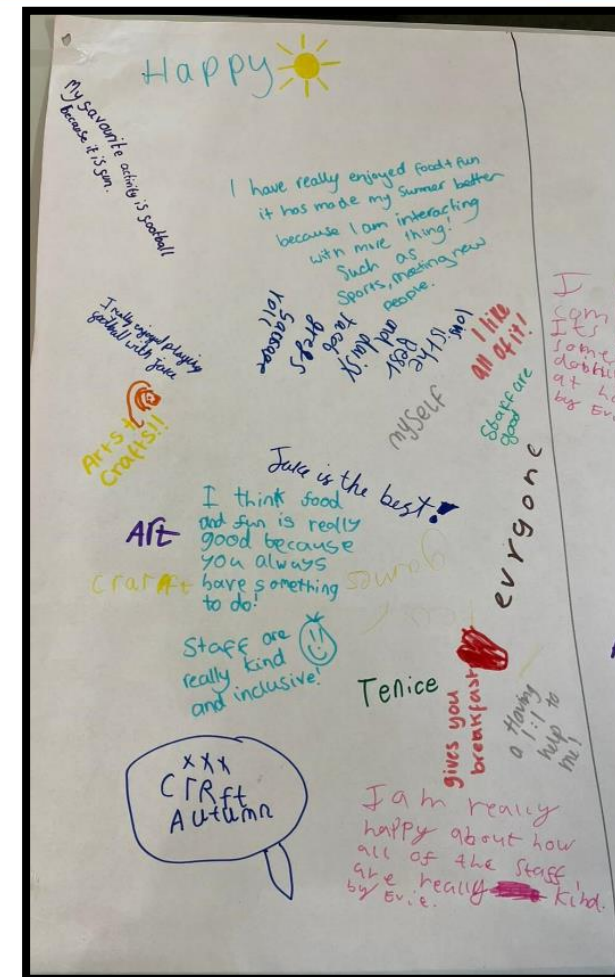 Happy
My favourite activity is football
because it is fun.
I have really enjoyed food + fun
it has made my summer better
because I am interacting
with more thing!
Such as
Sports, meeting new
people.
I really enjoyed playing
football with Jake
Sausage
roll
gregs
is the
Best
I like
all of it!
myself
Staff are
good
Arts +
Crafts!!
Jake is the best!
I think food
and fun is really
good because
you always
have something
to do!
Art
Crarft
games
evrgone
Staff are
really kind
and inclusive!
Tenice
gives you
breakfast
Having
a 1:1 to
help
me!
xxx
CTRft
Autumn
I am really
happy about how
all of the staff
are really kind.
by Evie.
I
Its
at
by